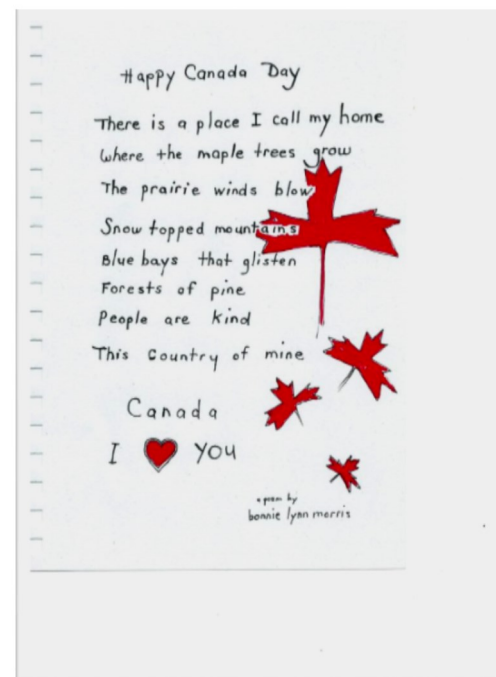 Happy Canada Day
There is a place I call my home
Where the maple trees grow
The prairie winds blow
Snow topped mountains
Blue bays that glisten
Forests of pine
People are kind
This Country of mine
Canada
I ❤ YOU
a poem by
bonnie lynn morris